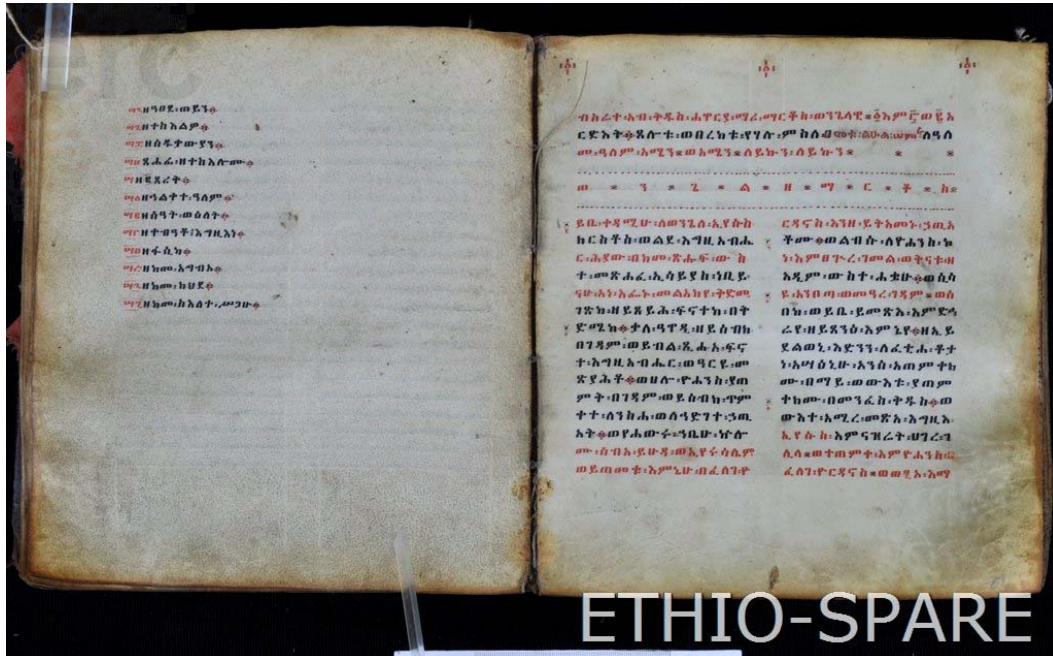 ፵፩ ዘዓፀደ፡ወይን።
፵፪ ዘተከአልም።
፵፫ ዘሰዱቃውያን።
፵፬ ጸሐፊ፡ዘተከአሎሙ።
ዘ፪ጸሪቅ።
ዘኅልቀተ፡ዓለም።
ዘሰዓት፡ወዕለት።
ዘተብዓቶ፡እግዚእነ።
ዘፋሲካ።
ዘከመ፡አግብአ።
ዘከመ፡ክህደ።
ዘከመ፡ስእለተ፡ሥጋሁ።
ብስራተ፡አብ፡ቅዱስ፡ሐዋርያ፡ማሪ፡ማርቆስ፡ወንጌላዊ
ርድእት።ጸሎቱ፡ወበረከቱ፡የሃሉ፡ምስለ
ሙ፡ዓለም፡አሜን፡ወአሜን፡ለይኩን፡ለይኩን
ወ ን ጌ ል ዘ ማ ር ቆ ስ
ይቤ፡ቀዳሚሁ፡ለወንጌለ፡ኢየሱስ
ክርስቶስ፡ወልደ፡እግዚአብሔ
ር፡ሕያው፡በከመ፡ጽሑፍ፡ው ስ
ተ፡መጽሐፈ፡ኢሳይያስ፡ነቢይ፡
ናሁ፡አነ፡እፌኑ፡መልአክየ፡ቅድመ
ገጽከ፡ዘይጸይሕ፡ፍኖተከ፡በቅ
ድሜከ።ቃለ፡ዓዋዲ፡ዘይሰብክ
በገዳም፡ወይብል፡ጺሑ፡ፍኖ
ተ፡እግዚአብሔር፡ወዓርዩ፡መ
ጽያሕቶ።ወሀሎ፡ዮሐንስ፡ያጠ
ምቅ፡በገዳም፡ወይሰብክ፡ጥም
ቀተ፡ለንስሐ፡ወለኅድገተ፡ኃጢ
አት።ወየሐውሩ፡ኀቤሁ፡ኵሎ
ሙ፡ሰብአ፡ይሁዳ፡ወኢየሩሳሌም
ወይጠመቁ፡እምኔሁ፡በፈለገ፡ዮ
ርዳኖስ፡እንዘ፡ይትአመኑ፡ኃጢአ
ቶሙ።ወልብሱ፡ለዮሐንስ፡ኮ
ነ፡እምፀጕረ፡ገመል፡ወቅናቱ፡ዘ
አዲም፡ውስተ፡ሐቌሁ።ወሲሳ
ዩ፡አንበጣ፡ወመዓረ፡ገዳም።ወሰ
በከ፡ወይቤ፡ይመጽእ፡እምድኅ
ሬየ፡ዘይጸንዕ፡እምኔየ።ዘኢይ
ደልወኒ፡እድንን፡ለፈቲሐ፡ቶታ
ነ፡አሣዕኒሁ፡አንሰ፡አጠምቀክ
ሙ፡በማይ፡ወውእቱ፡ያጠም
ቀክሙ፡በመንፈስ፡ቅዱስ።ወ
ውእተ፡አሚረ፡መጽአ፡እግዚእ
ኢየሱስ፡እምናዝሬት፡ሀገረ፡ገ
ሊላ።ወተጠምቀ፡እምዮሐንስ፡በ
ፈለገ፡ዮርዳኖስ።ወወፂኦ፡እማ
ETHIO-SPARE